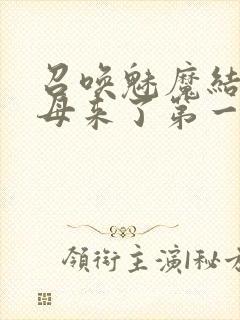 召喚魅魔結
母来了第一
領銜主演|秘方